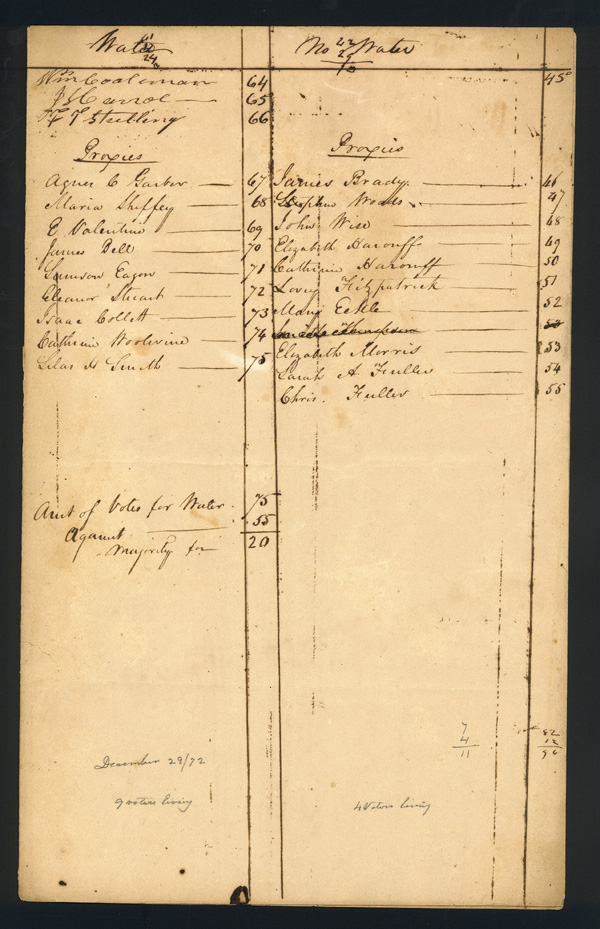 Water
24
No Water
22
29
Wm Coaleman 64
45
J S Carrol 65
F T Stribling 66
Proxies
Agnes C Garber 67
Maria Sheffey 68
E Valentine 69
James Bell 70
Samson Eagon 71
Eleanor Stuart 72
Isaac Collett 73
Catharine Woolwine 74
Silas H Smith 75
Proxies
James Brady 46
Stephen Woods 47
John Wise 48
Elizabeth Harouff 49
Catherine Harouff 50
Fitzpatrick 51
Mary Eckle 52
Elizabeth Morris 53
Sarah A. Fuller 54
Chris. Fuller 55
Amt of Votes for Water 75
Against 55
Majority for 20
7
4
11
82
12
December 29/72
9 voters living
4 Voters living